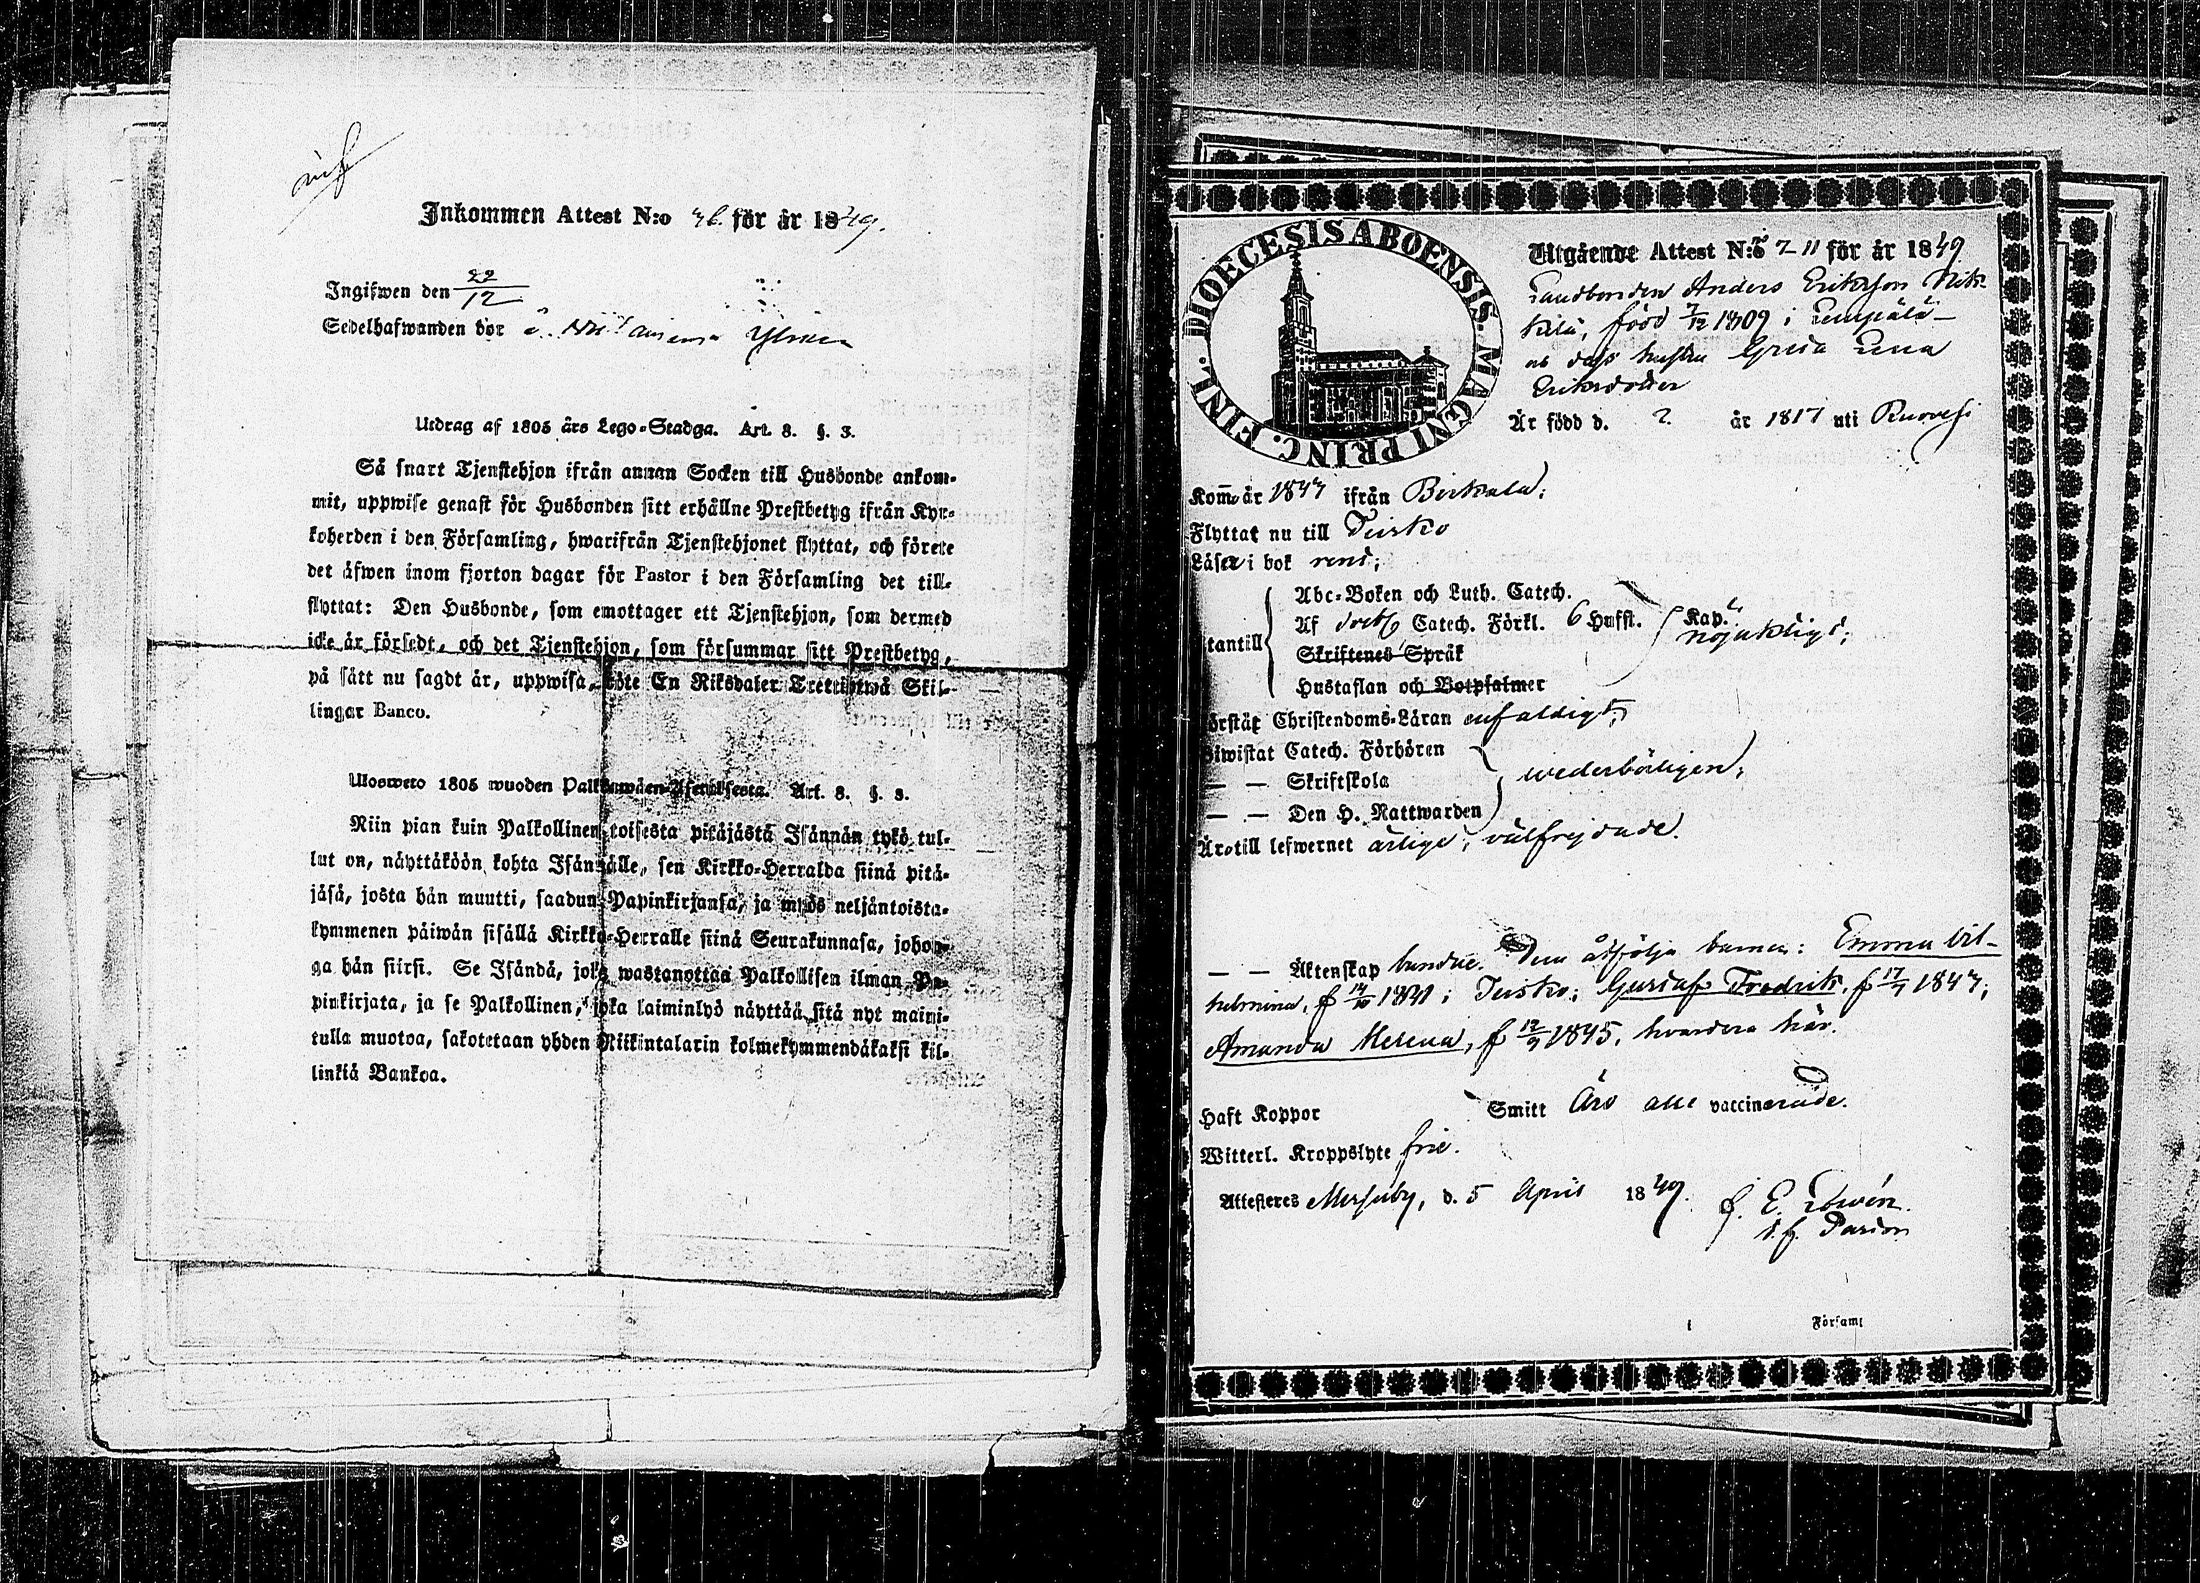 Inkommen Attest N:o 46. för år 1849.
Ingifwen den 22/12
Sedelhafwanden bor å
Utdrag af 1805 års Lego-Stadga. Art. 8. §. 3.
Så snart Tjenstehjon ifrån annan Socken till Husbonde ankom-
mit, uppwise genast för Husbonden sitt erhållne Prestbetyg ifrån Kyr-
koherden i den Församling, hwarifrån Tjenstehjonet flyttat, och förete
det äfwen inom fjorton dagar för Pastor i den Församling det till-
flyttat: Den Husbonde, som emottager ett Tjenstehjon, som dermed
icke är försedt, och det Tjenstehjon, som försummar sitt Prestbetyg,
på sätt nu sagdt är, uppwisa, böte En Riksdaler Trettiotwå Skil-
lingar Banco.
Ulosweto 1805 wuoden Palkkawäen-Asetuksesta. Art. 8. §. 3.
Niin pian kuin Palkollinen toisesta pitäjästä Isännän tykö tul-
lut on, näyttäköön kohta Isännälle, sen Kirkko-Herralda siinä pitä-
jäsä, josta hän muutti, saadun Papinkirjansa, ja myös neljäntoista-
kymmenen päiwän sisällä Kirkko-Herralle siinä Seurakunnasa, johon-
ga hän siirsi. Se Isändä, joka wastanottaa Palkollisen ilman Pa-
pinkirjata, ja se Palkollinen, joka laiminlyö näyttää sitä nyt maini-
tulla muotoa, sakotetaan yhden Riikintalarin kolmekymmendäkaksi kil-
linkiä Bankoa.
DIOECESIS ABOENSIS. MAGNI PRINC. FINL.
Utgående Attest N:o 211 för år 1849
Landbonden Anders Eriksson Nik-
kilä, född 7/12 1809 i Lempälä
och dess hustru Greta Lena
Eriksdotter
Är född d. ? år 1817 uti Ruovesi
Kom år 1843 ifrån Birkala;
Flyttat nu till Teisko
Läser i bok rent;
Abc-Boken och Luth. Catech.
Af Catech. Förkl. 6 Hufst. Kap.
Utantill Skriftenes Språk nöjaktligt;
Hustaflan och Botpsalmer
Förstår Christendoms-Läran enfaldigt;
Biwistat Catech. Förhören
— — Skriftskola wederbörligen;
— — Den H. Nattwarden
Äro till lefwernet ärlige, välfrejdade.
— — Äktenskap bundne. Dem åtfölja barnen: Emma Vil-
helmina, f 14/10 1841 i Teisko; Gustaf Fredrik, f 17/7 1843;
Amanda Helena, f 12/9 1845, hvardera här.
Haft Koppor Smitt Äro alle vaccinerade.
Witterl. Kroppslyte frie.
Attesteres Messuby, d. 5 April 1849.
f. E. Löwén.
t.f. Pastor
Församl